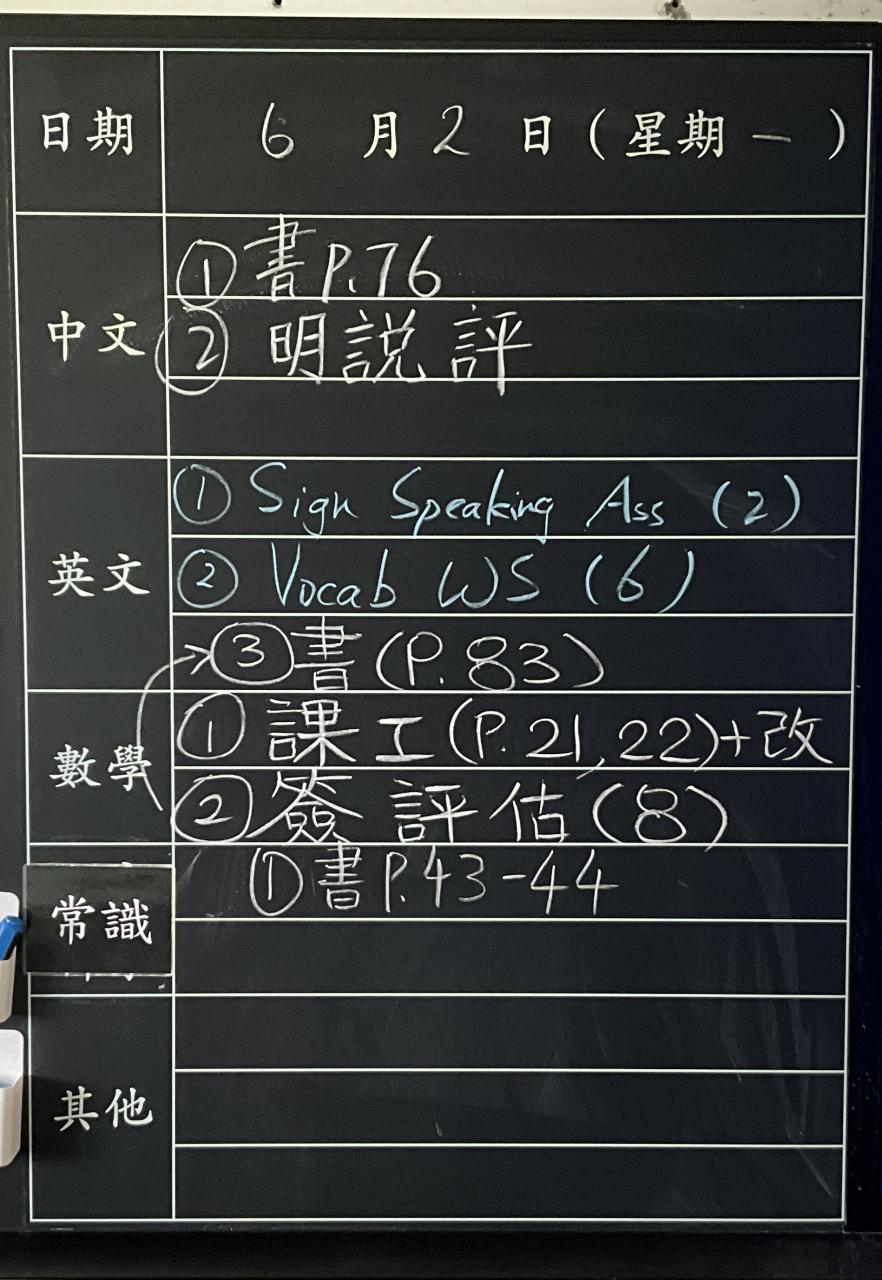 日期 6月2日(星期一)
中文
①書P.76
②明説評
英文
①Sign Speaking Ass (2)
②Vocab WS (6)
③書(P.83)
數學
①課工(P.21,22)+改
②簽評估(8)
常識
①書P.43-44
其他